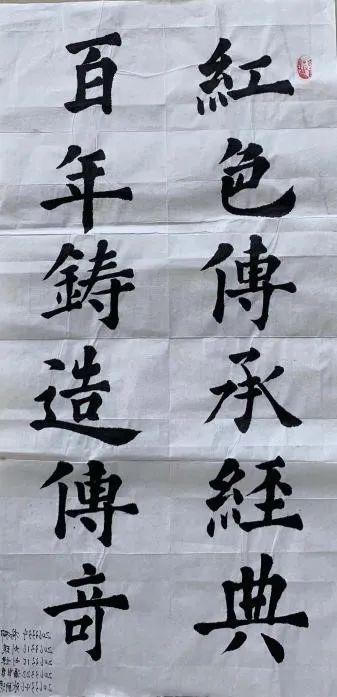 紅色傳承經典
百年鑄造傳奇